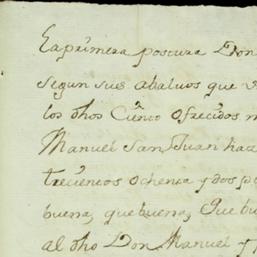 la primera postura Don
segun sus abaluos que
los dhos Ciento ofrecidos
Manuel San Juan haz
trecientos ochenta y dos p
buena, que buena, que bu
al dho Don Manuel y